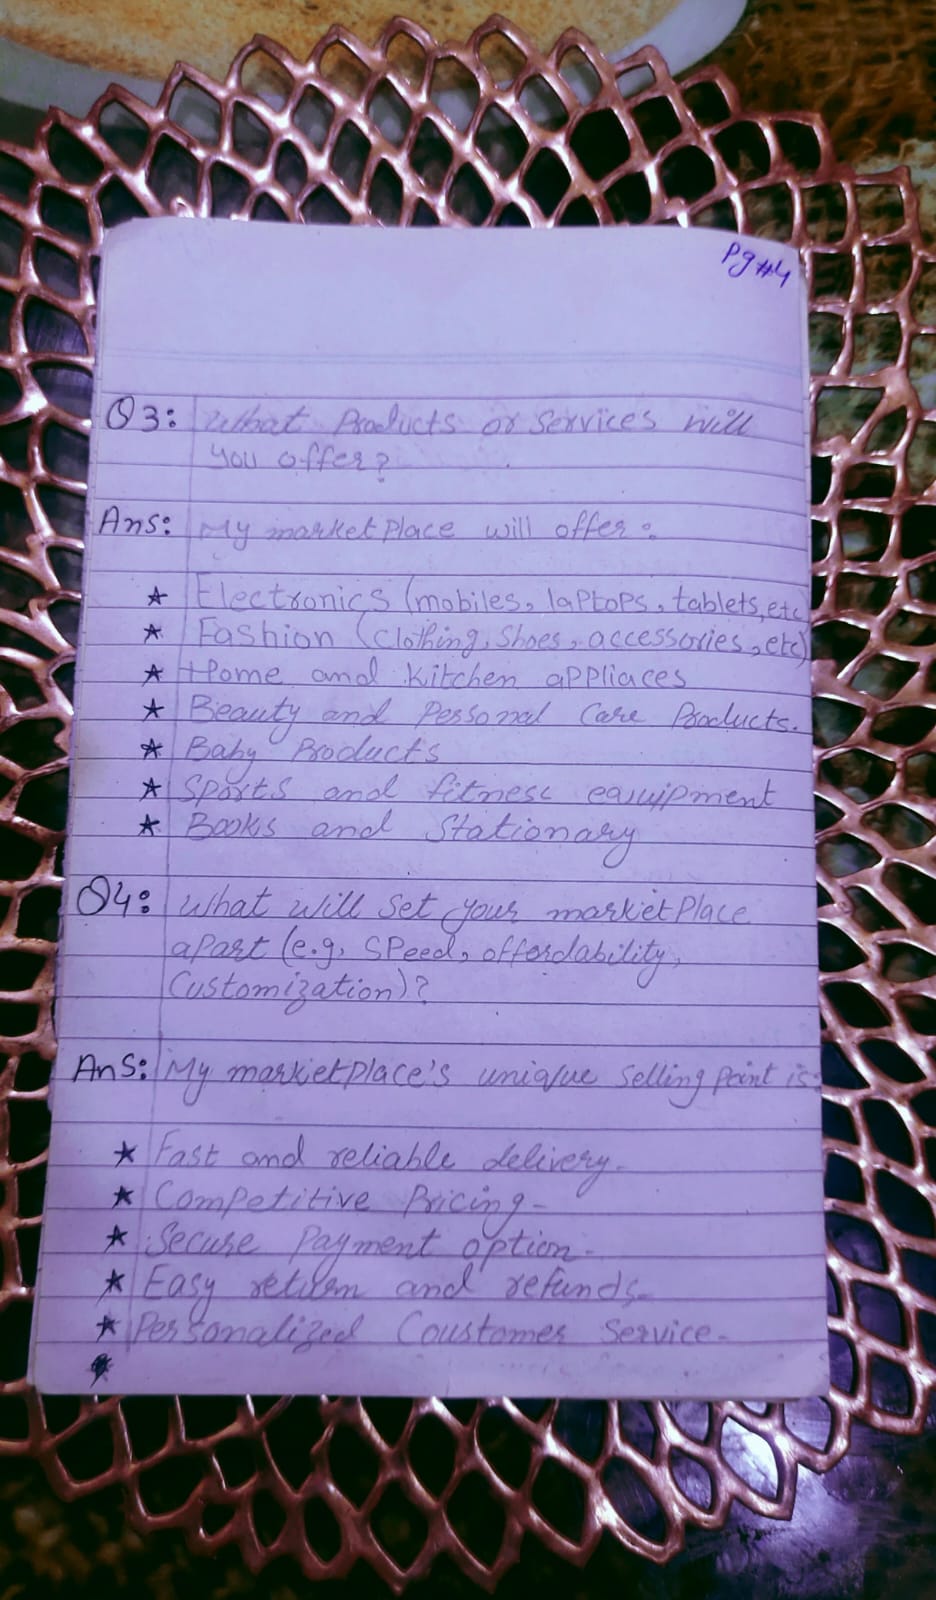 Pg#4
Q3: What Products or Services will
you offer?
Ans: My market Place will offer:
★ Electronics (mobiles, laptops, tablets, etc
★ Fashion (clothing, Shoes, accessories, etc)
★ Home and kitchen appliaces
★ Beauty and Personal Care Products.
★ Baby Products
★ Sports and fitness equipment
★ Books and Stationary
Q4: What will set your market Place
apart (e.g, Speed, affordability,
Customization)?
Ans: My market place's unique selling point is:
★ Fast and reliable delivery.
★ Competitive Pricing-
★ Secure Payment option-
★ Easy return and refunds-
★ Personalized Coustomer Service-